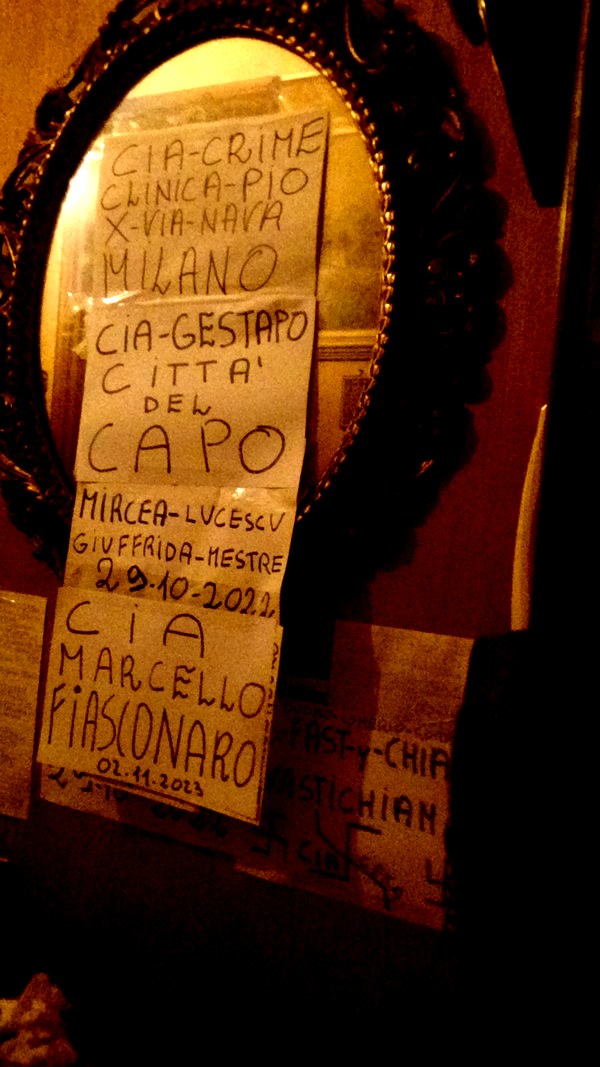 CIA-CRIME
CLINICA-PIO
X-VIA-NAVA
MILANO
CIA-GESTAPO
CITTA'
DEL
CAPO
MIRCEA-LUCESCU
GIUFFRIDA-MESTRE
29-10-2022
CIA
MARCELLO
FIASCONARO
02.11.2023
FAST-y-CHIA
VASTICHIAM
CIA